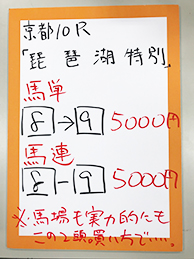 京都10R
「琵琶湖特別」
馬単
8→9 5000円
馬連
8-9 5000円
※馬場も実力的にも
この2頭の買い方で…。